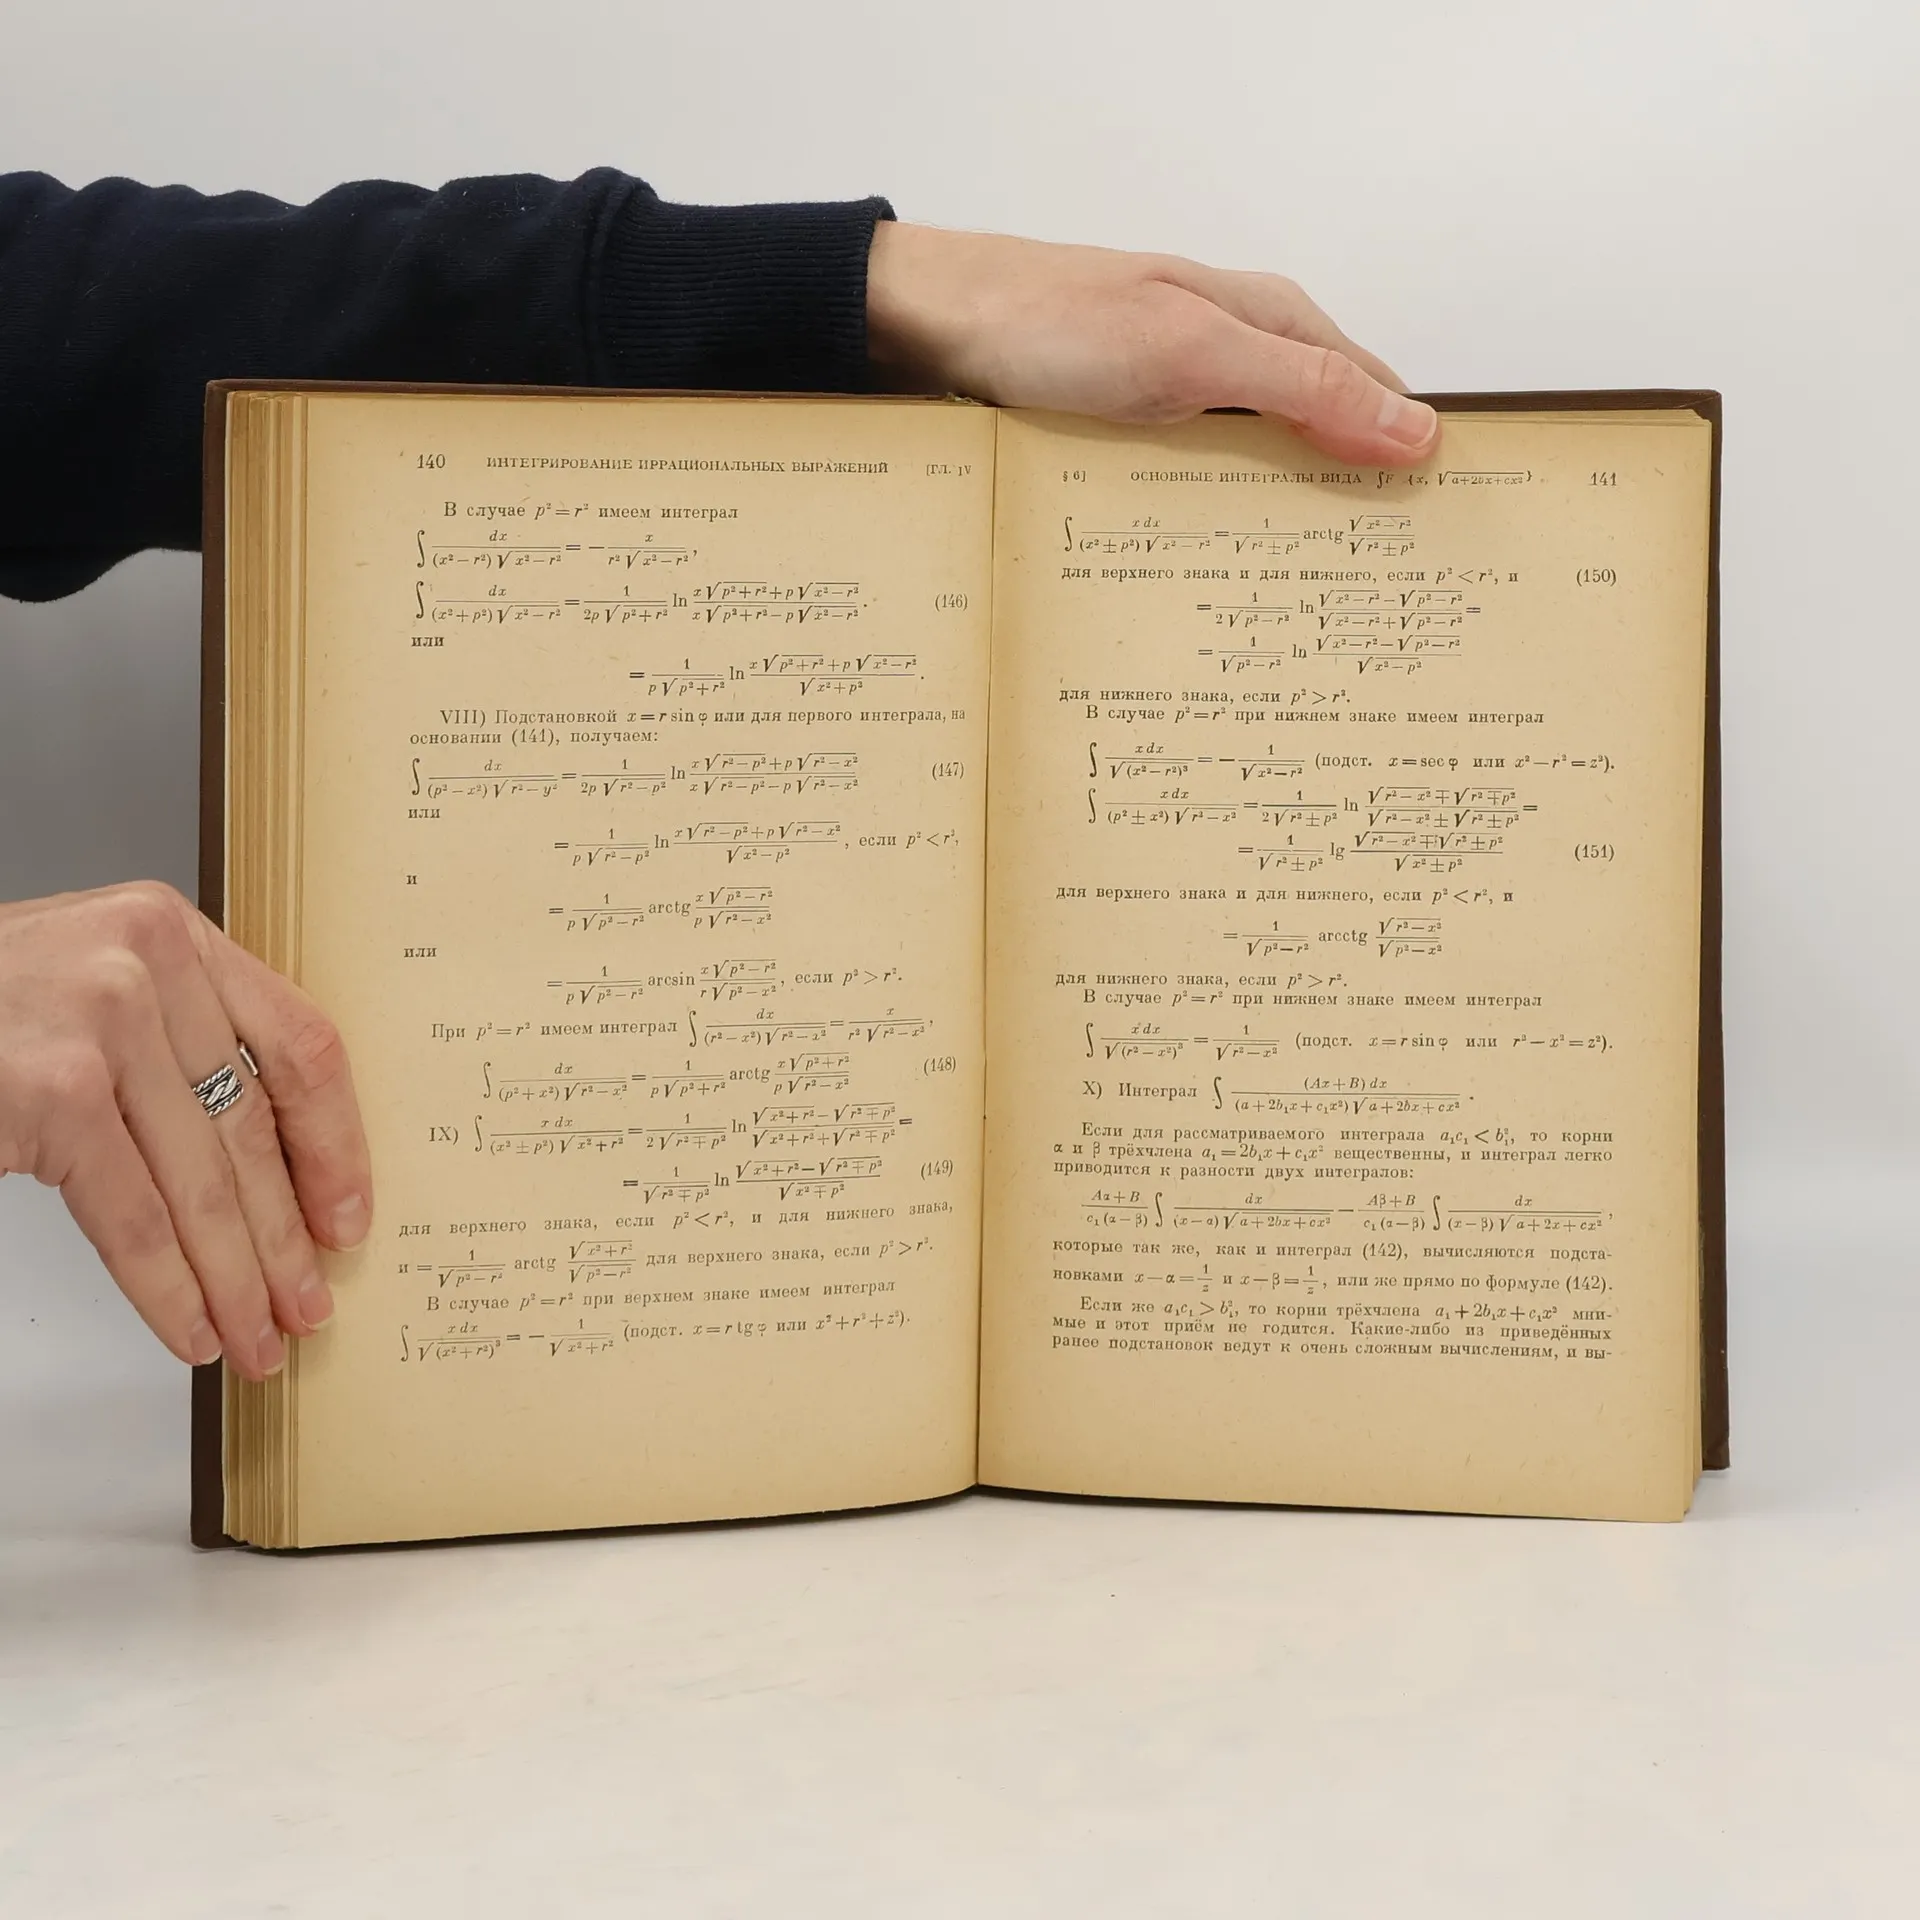 140 ИНТЕГРИРОВАНИЕ ИРРАЦИОНАЛЬНЫХ ВЫРАЖЕНИЙ [ГЛ. IV
В случае p² = r² имеем интеграл
∫ dx / ((x² − r²) √(x² − r²)) = − x / (r² √(x² − r²)),
∫ dx / ((x² + p²) √(x² − r²)) = 1 / (2p √(p² + r²)) ln (x √(p² + r²) + p √(x² − r²)) / (x √(p² + r²) − p √(x² − r²)). (146)
или
= 1 / (p √(p² + r²)) ln (x √(p² + r²) + p √(x² − r²)) / √(x² + p²).
VIII) Подстановкой x = r sin φ или для первого интеграла, на
основании (141), получаем:
∫ dx / ((p² − x²) √(r² − y²)) = 1 / (2p √(r² − p²)) ln (x √(r² − p²) + p √(r² − x²)) / (x √(r² − p²) − p √(r² − x²)) (147)
или
= 1 / (p √(r² − p²)) ln (x √(r² − p²) + p √(r² − x²)) / √(x² − p²), если p² < r²,
и
= 1 / (p √(p² − r²)) arctg (x √(p² − r²)) / (p √(r² − x²))
или
= 1 / (p √(p² − r²)) arcsin (x √(p² − r²)) / (r √(p² − x²)), если p² > r².
При p² = r² имеем интеграл ∫ dx / ((r² − x²) √(r² − x²)) = x / (r² √(r² − x²)),
∫ dx / ((p² + x²) √(r² − x²)) = 1 / (p √(p² + r²)) arctg (x √(p² + r²)) / (p √(r² − x²)) (148)
IX) ∫ x dx / ((x² ± p²) √(x² + r²)) = 1 / (2 √(r² ∓ p²)) ln (√(x² + r²) − √(r² ∓ p²)) / (√(x² + r²) + √(r² ∓ p²)) =
= 1 / √(r² ∓ p²) ln (√(x² + r²) − √(r² ∓ p²)) / √(x² ∓ p²) (149)
для верхнего знака, если p² < r², и для нижнего знака,
и = 1 / √(p² − r²) arctg √(x² + r²) / √(p² − r²) для верхнего знака, если p² > r².
В случае p² = r² при верхнем знаке имеем интеграл
∫ x dx / √(x² + r²)³ = − 1 / √(x² + r²) (подст. x = r tg φ или x² + r² + z²).
§ 6] ОСНОВНЫЕ ИНТЕГРАЛЫ ВИДА ∫F {x, √(a+2bx+cx²)} 141
∫ x dx / ((x² ± p²) √(x² − r²)) = 1 / √(r² ± p²) arctg √(x² − r²) / √(r² ± p²)
для верхнего знака и для нижнего, если p² < r², и (150)
= 1 / (2 √(p² − r²)) ln (√(x² − r²) − √(p² − r²)) / (√(x² − r²) + √(p² − r²)) =
= 1 / √(p² − r²) ln (√(x² − r²) − √(p² − r²)) / √(x² − p²)
для нижнего знака, если p² > r².
В случае p² = r² при нижнем знаке имеем интеграл
∫ x dx / √(x² − r²)³ = − 1 / √(x² − r²) (подст. x = sec φ или x² − r² = z²).
∫ x dx / ((p² ± x²) √(r² − x²)) = 1 / (2 √(r² ± p²)) ln (√(r² − x²) ∓ √(r² ∓ p²)) / (√(r² − x²) ± √(r² ± p²)) =
= 1 / √(r² ± p²) lg (√(r² − x²) ∓ √(r² ± p²)) / √(x² ± p²) (151)
для верхнего знака и для нижнего, если p² < r², и
= 1 / √(p² − r²) arcctg √(r² − x²) / √(p² − x²)
для нижнего знака, если p² > r².
В случае p² = r² при нижнем знаке имеем интеграл
∫ x dx / √(r² − x²)³ = 1 / √(r² − x²) (подст. x = r sin φ или r² − x² = z²).
X) Интеграл ∫ (Ax + B) dx / ((a + 2b₁x + c₁x²) √(a + 2bx + cx²)).
Если для рассматриваемого интеграла a₁c₁ < b₁², то корни
α и β трёхчлена a₁ = 2b₁x + c₁x² вещественны, и интеграл легко
приводится к разности двух интегралов:
(Aα + B) / (c₁ (α − β)) ∫ dx / ((x − α) √(a + 2bx + cx²)) − (Aβ + B) / (c₁ (α − β)) ∫ dx / ((x − β) √(a + 2x + cx²)),
которые так же, как и интеграл (142), вычисляются подста-
новками x − α = 1/z и x − β = 1/z, или же прямо по формуле (142).
Если же a₁c₁ > b₁², то корни трёхчлена a₁ + 2b₁x + c₁x² мни-
мые и этот приём не годится. Какие-либо из приведённых
ранее подстановок ведут к очень сложным вычислениям, и вы-